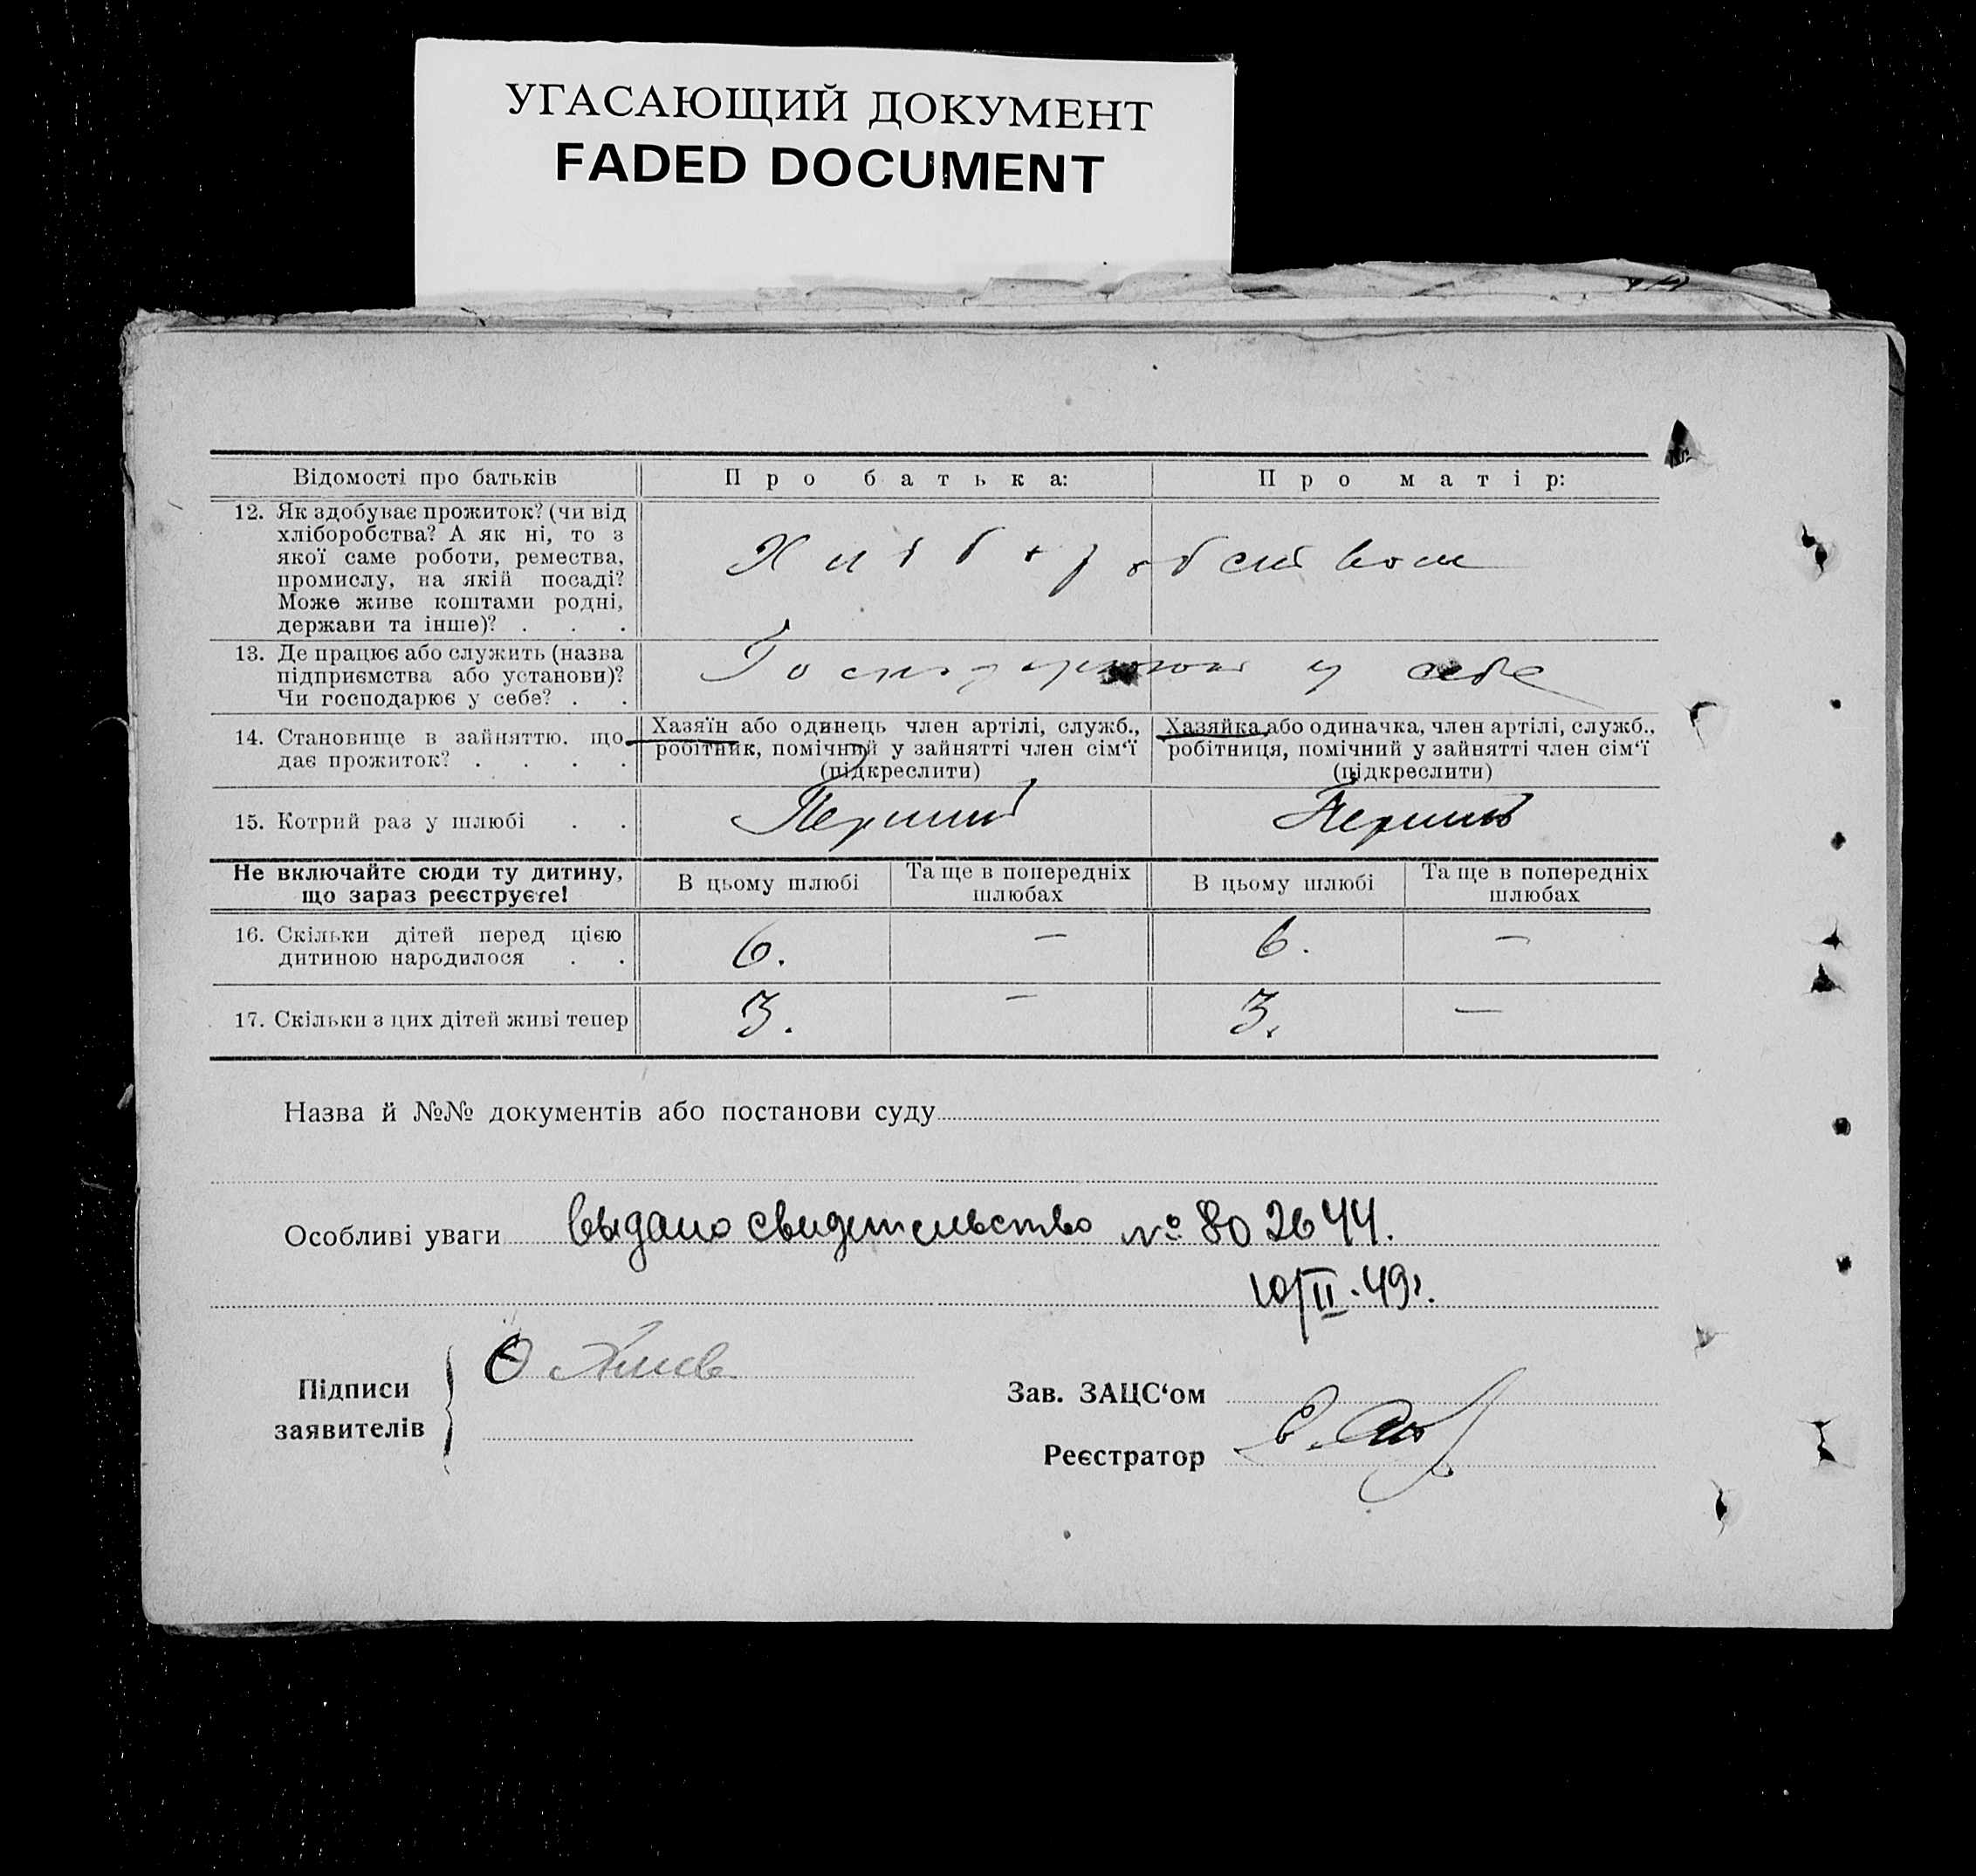 УГАСАЮЩИЙ ДОКУМЕНТ
FADED DOCUMENT
Відомості про батьків
Про батька:
Про матір:
12. Як здобуває прожиток? (чи від
хліборобства? А як ні, то з
якої саме роботи, ремества,
промислу, на якій посаді?
Може живе коштами родні,
держави та інше)? . . .
Хліборобством
13. Де працює або служить (назва
підприємства або установи)?
Чи господарює у себе? . .
у себе
14. Становище в зайняттю, що
дає прожиток? . . . .
Хазяїн або одинець член артілі, служб.,
робітник, помічний у зайнятті член сім'ї
(підкреслити)
Хазяйка або одиначка, член артілі, служб.,
робітниця, помічний у зайнятті член сім'ї
(підкреслити)
15. Котрий раз у шлюбі . .
Перший
Перший
Не включайте сюди ту дитину,
що зараз реєструєте!
В цьому шлюбі
Та ще в попередніх
шлюбах
В цьому шлюбі
Та ще в попередніх
шлюбах
16. Скільки дітей перед цією
дитиною народилося . .
6. — 6. —
17. Скільки з цих дітей живі тепер
3. — 3. —
Назва й №№ документів або постанови суду
Особливі уваги выдано свидетельство № 802644.
10/II.49г.
Підписи
заявителів
Зав. ЗАЦС'ом
Реєстратор